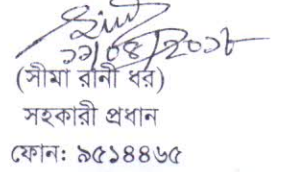 ১১/০৪/২০১৮
(সীমা রানী ধর)
সহকারী প্রধান
ফোন: ৯৫১৪৪৬৫